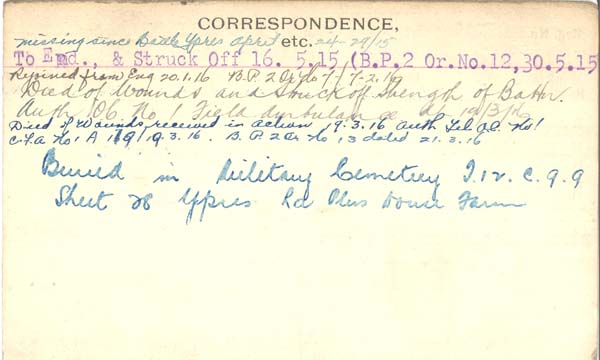 CORRESPONDENCE,
missing since Battle Ypres April etc. 24-29/15
To Emd., & Struck Off 16. 5.15 (B.P.2 Or.No.12,30.5.15
Rejoined from Eng 20.1.16 B.P.2 Or No 7/7-2.16
Died of Wounds and Struck off Strength of Battn.
Auth. O.C. No 1 Field Ambulance
Died of Wounds received in action 9.3.16 Auth Tel O.C. No 1
C.F.A. No. 1 A 19/19.3.16. B.P.2 Or No 13 dated 21.3.16
Buried in Military Cemetery I.12.C.9.9
Sheet 28 Yppres La Plus Douse Farm